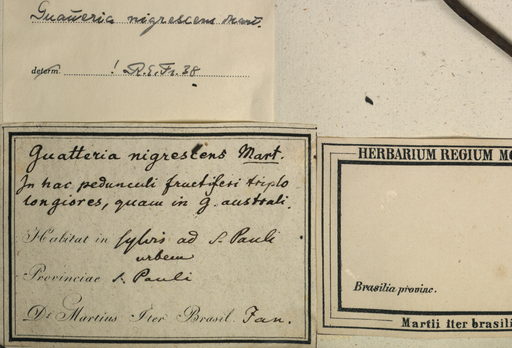 Guatteria nigrescens Mart.
determ. ! R.E.Fr. 38
Guatteria nigrescens Mart.
In hac pedunculi fructiferi triplo
longiores, quam in G. australi.
Habitat in sylvis ad S. Pauli
urbem
Provinciae S. Pauli
Dr Martius Iter Brasil. Jan.
HERBARIUM REGIUM MO
Brasilia provinc.
Martii iter brasili